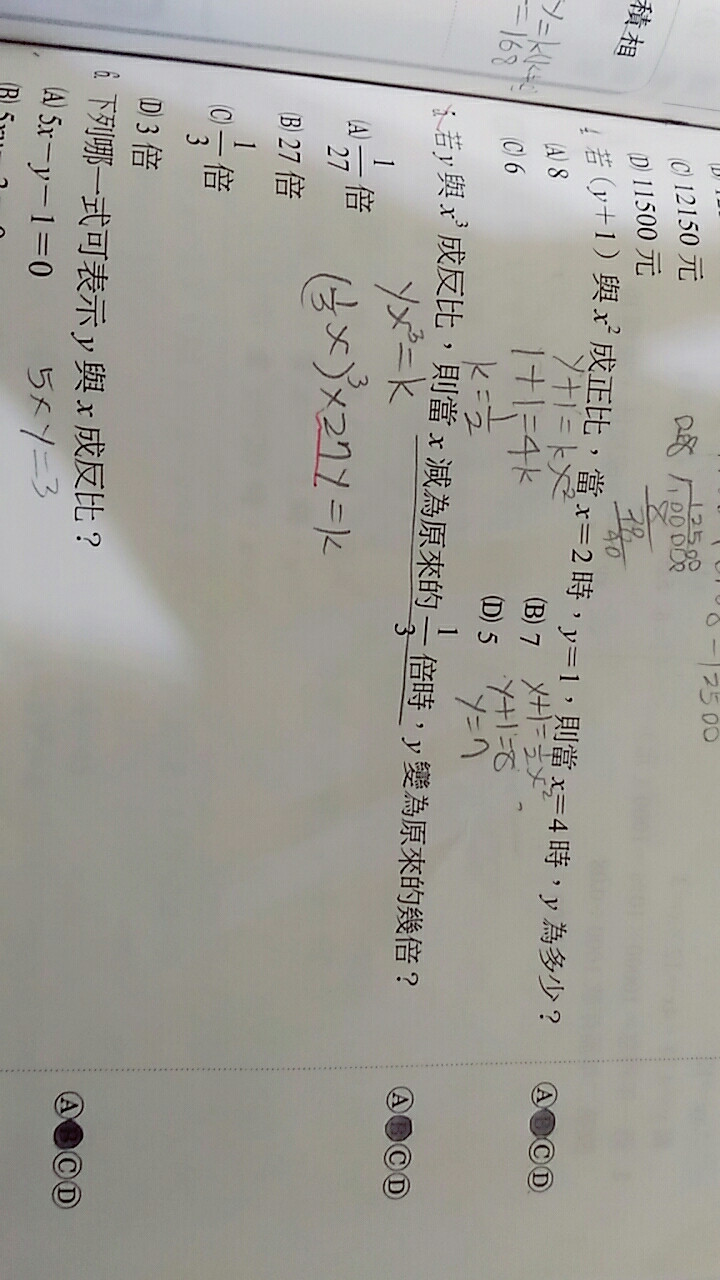 積相
(C) 12150 元
(D) 11500 元
4. 若(y+1)與 x² 成正比，當 x=2 時，y=1，則當 x=4 時，y 為多少？
(A) 8
(B) 7
(C) 6
(D) 5
ⒶⒷⒸⒹ
y+1=kx²
1+1=4k
k=1/2
y+1=8
y=7
5. 若 y 與 x³ 成反比，則當 x 減為原來的 1/3 倍時，y 變為原來的幾倍？
(A) 1/27 倍
(B) 27 倍
(C) 1/3 倍
(D) 3 倍
ⒶⒷⒸⒹ
yx³=k
(1/3 x)³×27y=k
6. 下列哪一式可表示 y 與 x 成反比？
(A) 5x−y−1=0
ⒶⒷⒸⒹ
5xy=3